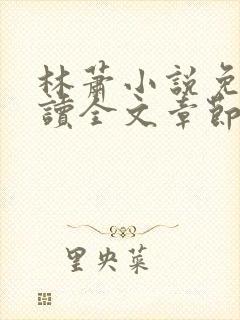 林蕭小說免
讀全文章節
里央菜